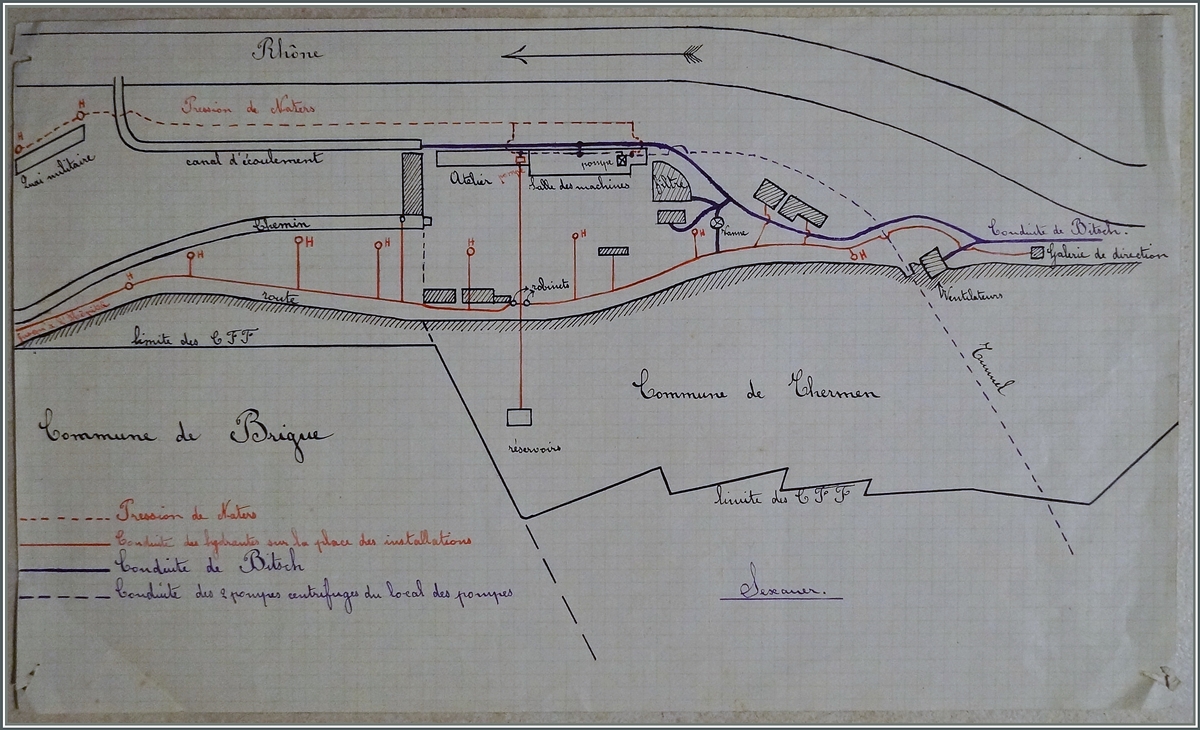 Rhône
H
Pression de Naters
H
Quai militaire
canal d'écoulement
Atelier
pompe
Salle des machines
pompe
filtre
Chemin
H
H
H
H
H
H
H
H
Vanne
Conduite de Bitsch.
Galerie de direction
Ventilateurs
robinets
route
limite des CFF
Tunnel
Commune de Thermen
Commune de Brigue
réservoirs
limite des CFF
Pression de Naters
Conduite des hydrantes sur la place des installations
Conduite de Bitsch
Conduite des 2 pompes centrefuges du local des pompes
Sexauer.